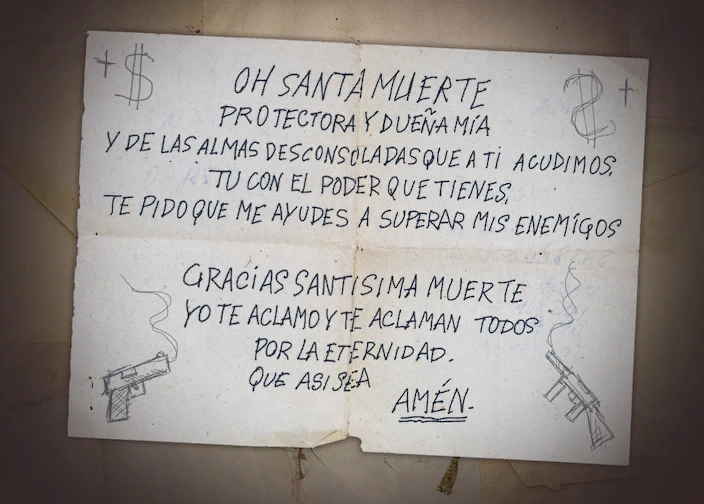 OH SANTA MUERTE
PROTECTORA Y DUEÑA MÍA
Y DE LAS ALMAS DESCONSOLADAS QUE A TI ACUDIMOS,
TU CON EL PODER QUE TIENES,
TE PIDO QUE ME AYUDES A SUPERAR MIS ENEMIGOS
GRACIAS SANTISIMA MUERTE
YO TE ACLAMO Y TE ACLAMAN TODOS
POR LA ETERNIDAD.
QUE ASI SEA
AMÉN.